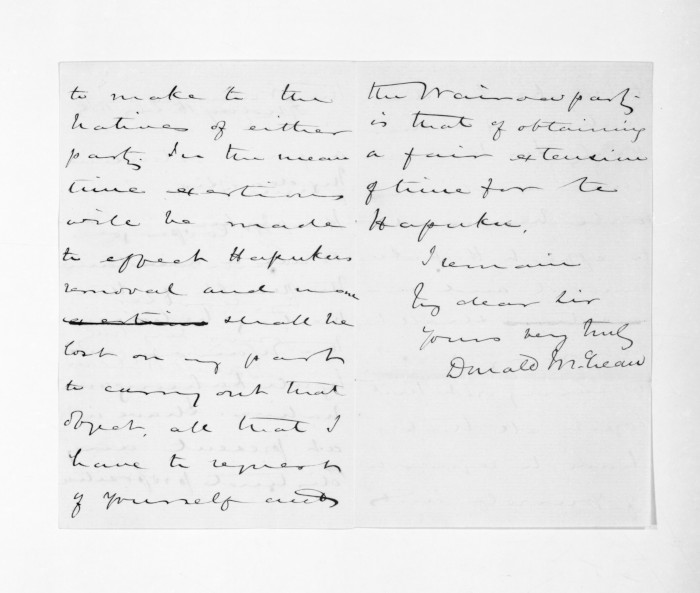 to make to the
Natives of either
party. In the mean
time exertions
will be made
to effect Hapukus
removal and
shall be
lost on my part
to carry out that
object, all that I
have to request
of yourself and
the Wairoa party
is that of obtaining
a fair extension
of time for te
Hapuku.
I remain
My dear Sir
Yours very truly
Donald McLean